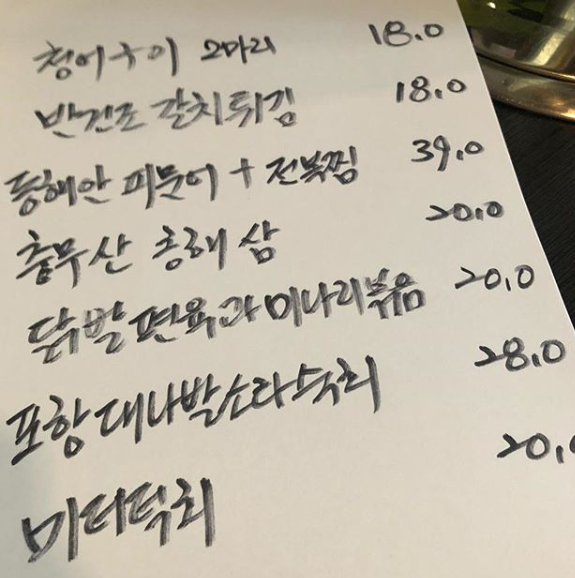 청어구이 2마리 18.0
반건조 갈치튀김 18.0
동해안 피문어 + 전복찜 39.0
충무산 홍해삼 20.0
닭발편육과 미나리볶음 20.0
포항대나발소라숙회 28.0
미더덕회 20.